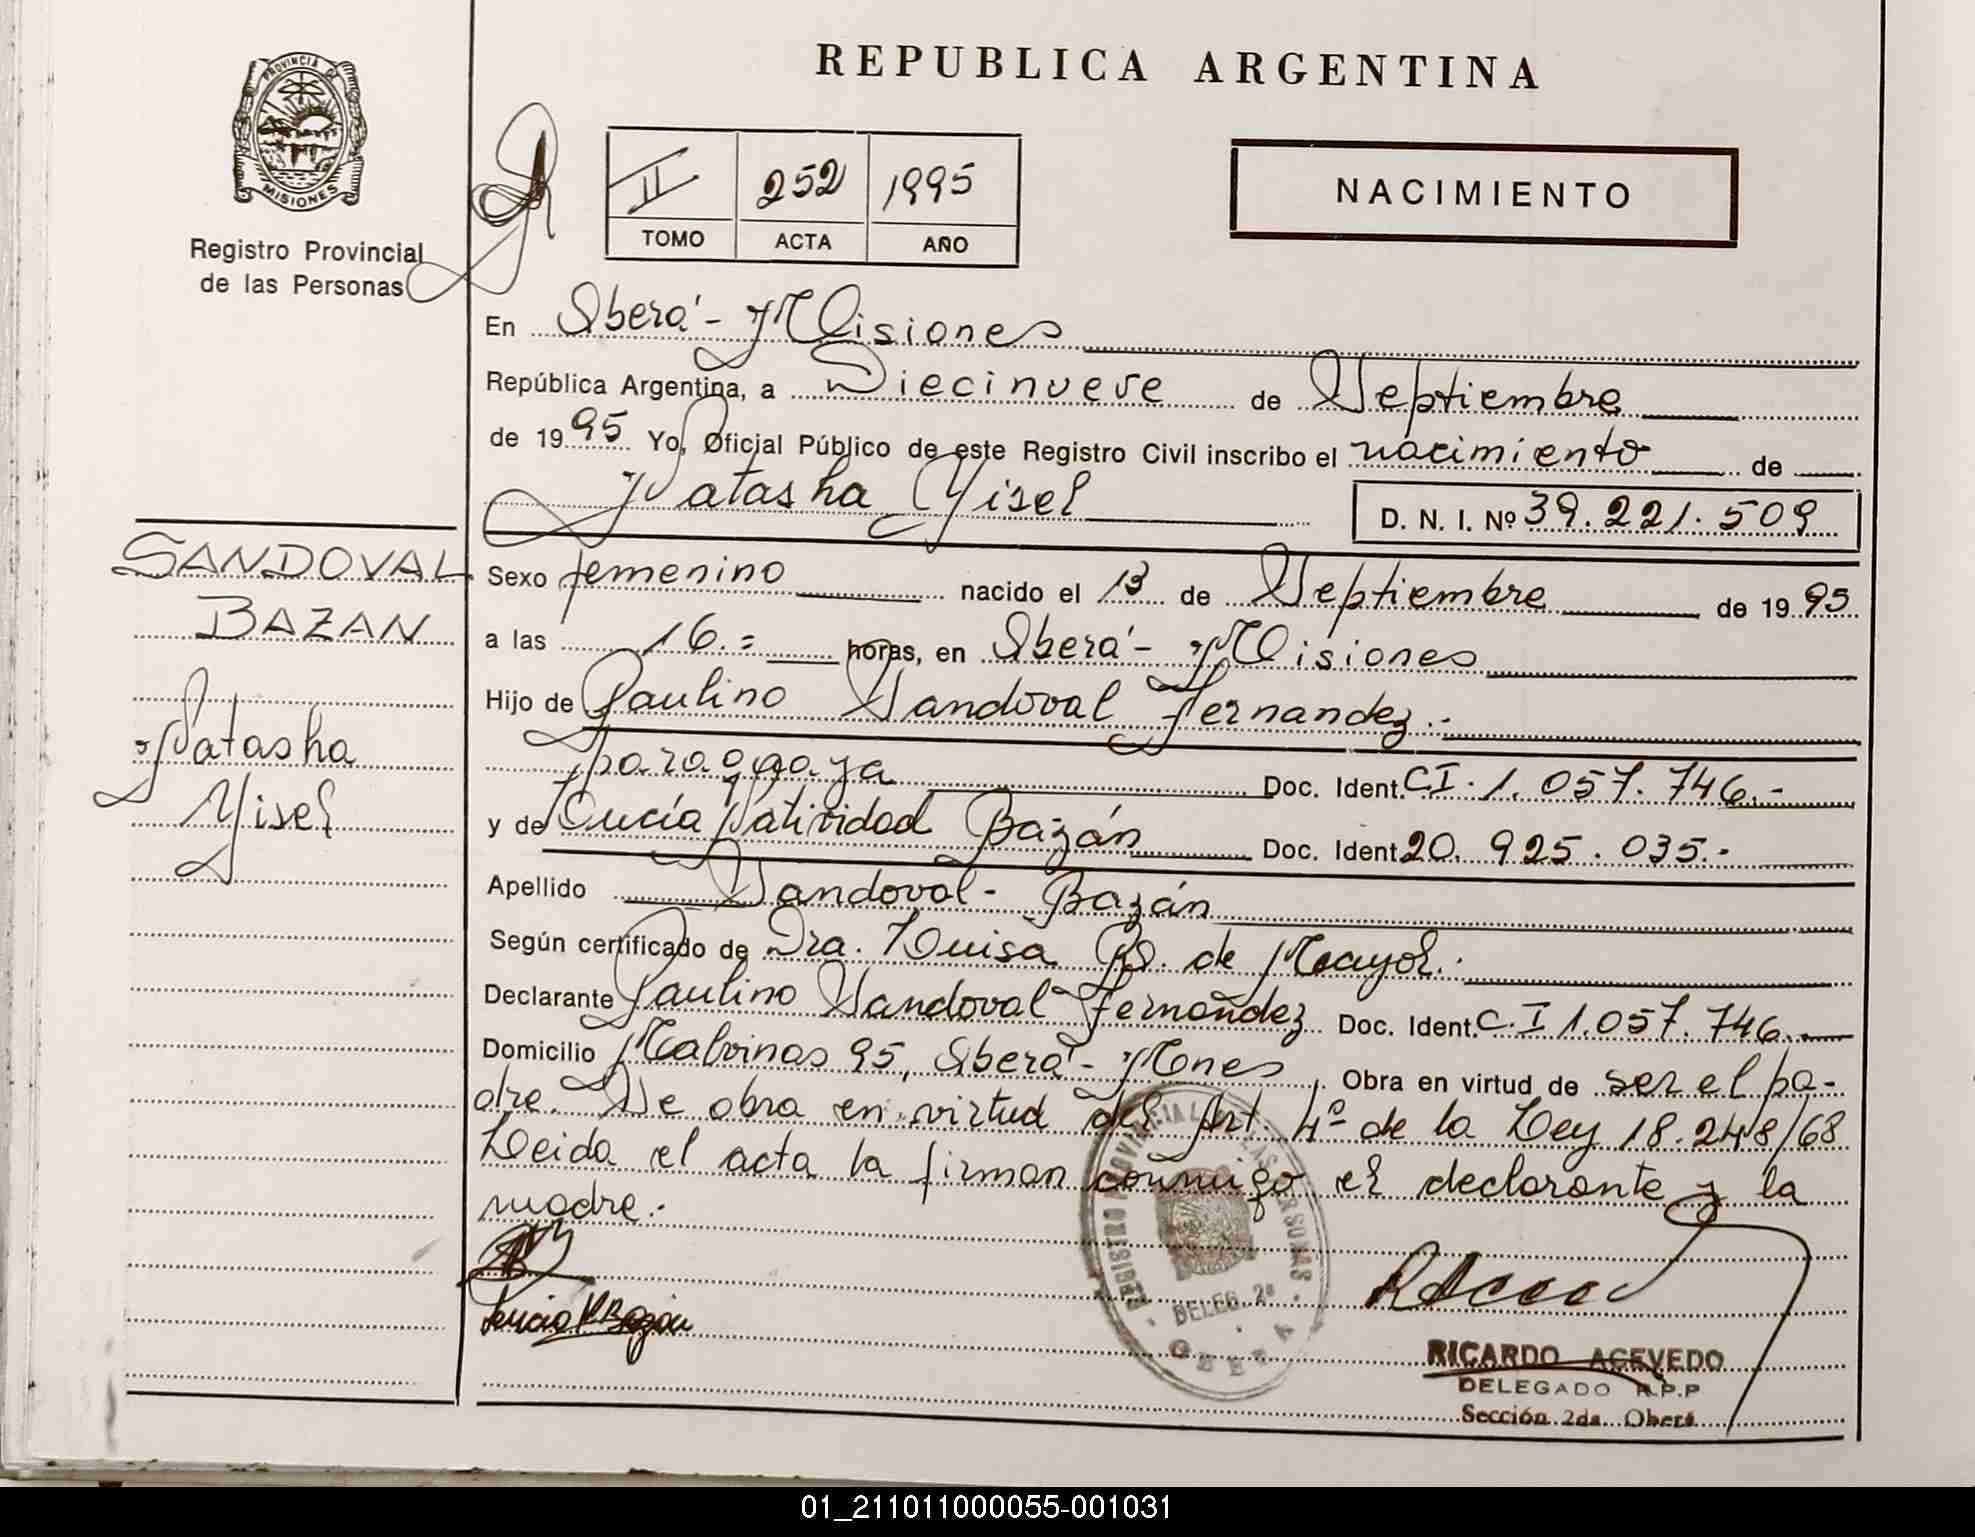 REPUBLICA ARGENTINA
PROVINCIA DE
MISIONES
Registro Provincial
de las Personas
II 252 1995
TOMO ACTA AÑO
NACIMIENTO
En Oberá - Misiones
República Argentina, a Diecinueve de Septiembre
de 1995 Yo, Oficial Público de este Registro Civil inscribo el nacimiento de
Natasha Yisel
D. N. I. Nº 39.221.509
SANDOVAL
BAZAN
Natasha
Yisel
Sexo femenino nacido el 13 de Septiembre de 1995
a las 16.= horas, en Oberá - Misiones
Hijo de Paulino Sandoval Fernandez.-
paraguaya Doc. Ident. CI. 1.057.746.-
y de Lucía Natividad Bazán Doc. Ident 20.925.035.-
Apellido Sandoval - Bazán
Según certificado de Dra. Luisa de Mayol.-
Declarante Paulino Sandoval Fernandez Doc. Ident. C.I 1.057.746.
Domicilio Malvinas 95, Oberá - Mnes Obra en virtud de ser el pa-
dre. Se obra en virtud del Art. 4º de la Ley 18.248/68
Leida el acta la firman conmigo el declarante y la
madre.-
Lucia N Bazán
REGISTRO PROVINCIAL DE LAS PERSONAS
DELEG. 2ª
RICARDO ACEVEDO
DELEGADO R.P.P
Sección 2da. Oberá
01_211011000055-001031